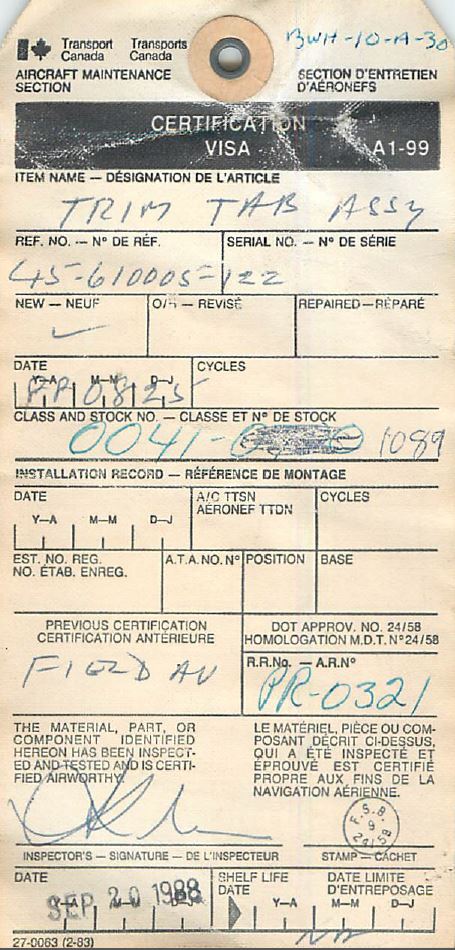 BWH-10-A-30
Transport Canada Transports Canada
AIRCRAFT MAINTENANCE SECTION SECTION D'ENTRETIEN D'AÉRONEFS
CERTIFICATION
VISA A1-99
ITEM NAME — DÉSIGNATION DE L'ARTICLE
TRIM TAB ASSY
REF. NO. — Nº DE RÉF. SERIAL NO. — Nº DE SÉRIE
45-610005-122
NEW — NEUF O/H — REVISÉ REPAIRED — RÉPARÉ
DATE CYCLES
Y—A M—M D—J
CLASS AND STOCK NO. — CLASSE ET Nº DE STOCK
0041- 1089
INSTALLATION RECORD — RÉFÉRENCE DE MONTAGE
DATE A/C TTSN AÉRONEF TTDN CYCLES
Y—A M—M D—J
EST. NO. REG. NO. ÉTAB. ENREG. A.T.A. NO. Nº POSITION BASE
PREVIOUS CERTIFICATION DOT APPROV. NO. 24/58
CERTIFICATION ANTÉRIEURE HOMOLOGATION M.D.T. Nº 24/58
R.R.No. — A.R.Nº
FIELD AV PR-0321
THE MATERIAL, PART, OR
COMPONENT IDENTIFIED
HEREON HAS BEEN INSPECT-
ED AND TESTED AND IS CERTI-
FIED AIRWORTHY.
LE MATÉRIEL, PIÈCE OU COM-
POSANT DÉCRIT CI-DESSUS,
QUI A ÉTÉ INSPECTÉ ET
ÉPROUVÉ EST CERTIFIÉ
PROPRE AUX FINS DE LA
NAVIGATION AÉRIENNE.
F.S.B.
9
24/58
INSPECTOR'S — SIGNATURE — DE L'INSPECTEUR STAMP — CACHET
DATE SHELF LIFE DATE DATE LIMITE D'ENTREPOSAGE
Y—A M—M D—J Y—A M—M D—J
SEP 20 1988
NA
27-0063 (2-83)